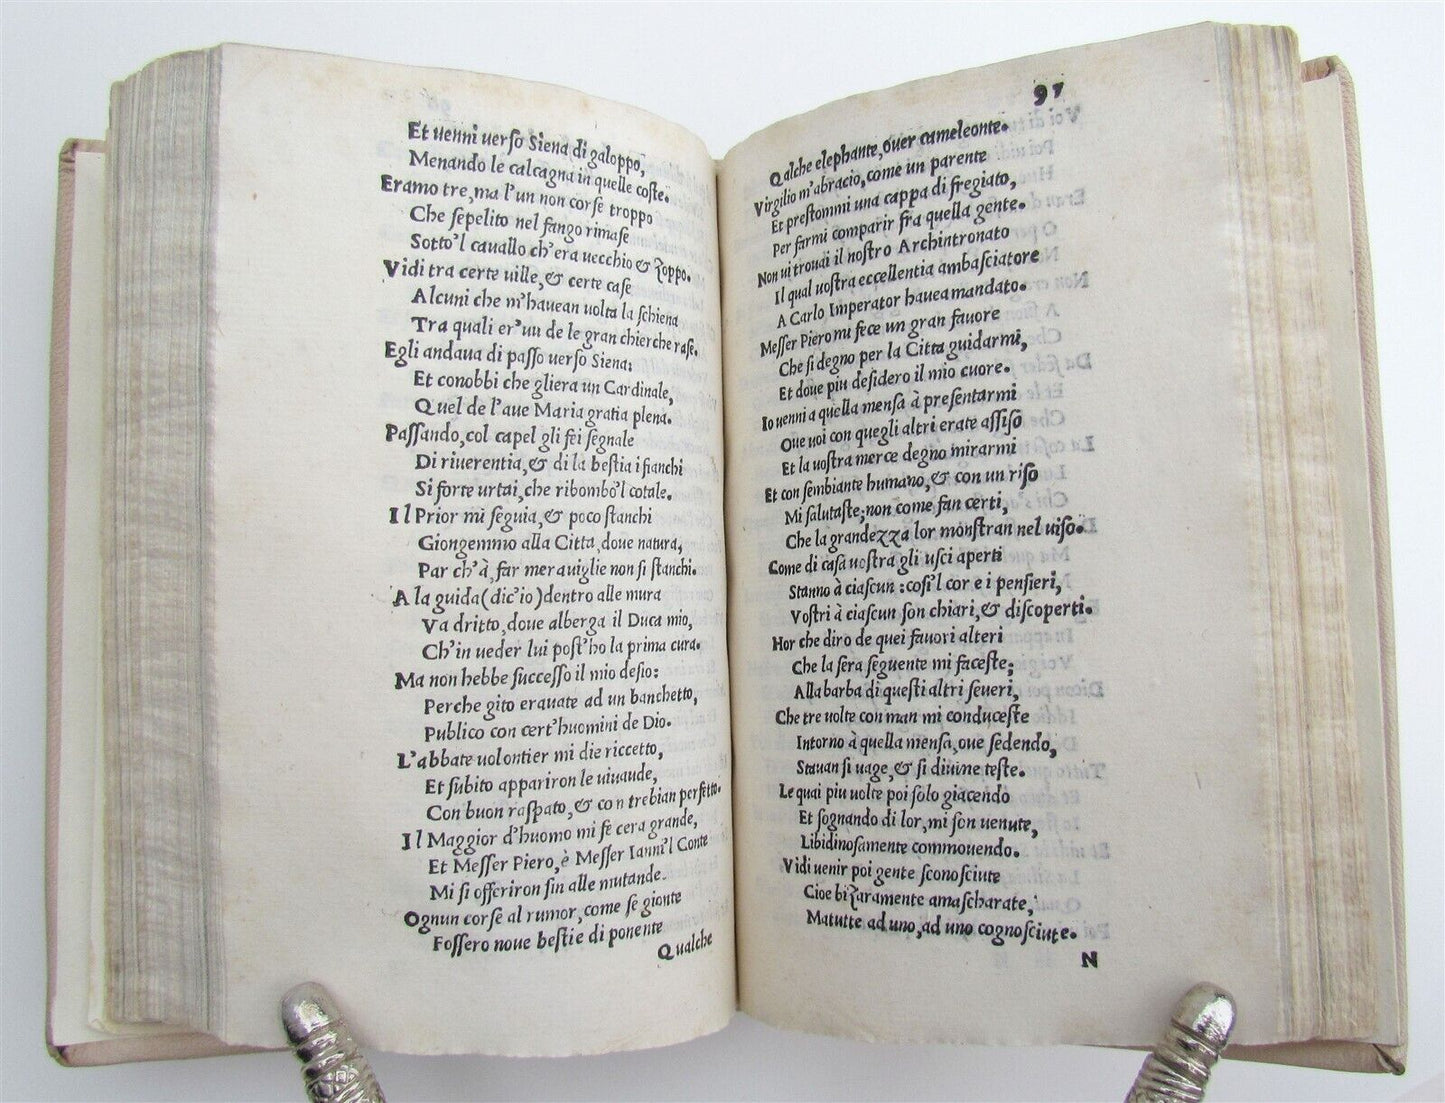 Et uenni uerso Siena di galoppo,
Menando le calcagna in quelle coste.
Eramo tre, ma l'un non corse troppo
Che sepelito nel fango rimase
Sotto'l cauallo ch'era uecchio & zoppo.
Vidi tra certe uille, & certe case
Alcuni che m'hauean uolta la schiena
Tra quali er'uu de le gran chierche rase.
Egli andaua di passo uerso Siena:
Et conobbi che gliera un Cardinale,
Quel de l'aue Maria gratia plena.
Passando, col capel gli fei segnale
Di riuerentia, & di la bestia i fianchi
Si forte urtai, che ribombò'l cotale.
Il Prior mi seguia, & poco stanchi
Giongemmo alla Citta, doue natura,
Par ch'à, far merauiglie non si stanchi.
A la guida (dic'io) dentro alle mura
Va dritto, doue alberga il Duca mio,
Ch'in ueder lui post'ho la prima cura.
Ma non hebbe successo il mio desio:
Perche gito erauate ad un banchetto,
Publico con cert'huomini de Dio.
L'abbate uolontier mi die riccetto,
Et subito appariron le uiuaude,
Con buon raspato, & con trebian perfetto.
Il Maggior d'huomo mi fe cera grande,
Et Messer Piero, è Messer Ianni'l Conte
Mi si offeriron fin alle mutande.
Ognun corse al rumor, come se gionte
Fossero noue bestie di ponente
Qualche
97
Qalche elephante, ouer cameleonte.
Virgilio m'abracio, come un parente
Et prestommi una cappa di fregiato,
Per farmi comparir fra quella gente.
Non ui trouai il nostro Archintronato
Il qual uostra eccellentia ambasciatore
A Carlo Imperator hauea mandato.
Messer Piero mi fece un gran fauore
Che si degno per la Citta guidarmi,
Et doue piu desidero il mio cuore.
Io uenni a quella mensa à presentarmi
Oue uoi con quegli altri erate assiso
Et la uostra merce degno mirarmi
Et con sembiante humano, & con un riso
Mi salutaste; non come fan certi,
Che la grandezza lor monstran nel uiso.
Come di casa uostra gli usci aperti
Stanno à ciascun: cosi'l cor e i pensieri,
Vostri à ciascun son chiari, & discoperti.
Hor che diro de quei fauori alteri
Che la sera seguente mi faceste;
Alla barba di questi altri seueri,
Che tre uolte con man mi conduceste
Intorno à quella mensa, oue sedendo,
Stauan si uage, & si diuine teste.
Le quai piu uolte poi solo giacendo
Et sognando di lor, mi son uenute,
Libidinosamente commouendo.
Vidi uenir poi gente sconosciute
Cioe bizaramente amascharate,
Matutte ad uno, ad uno cognosciute.
N